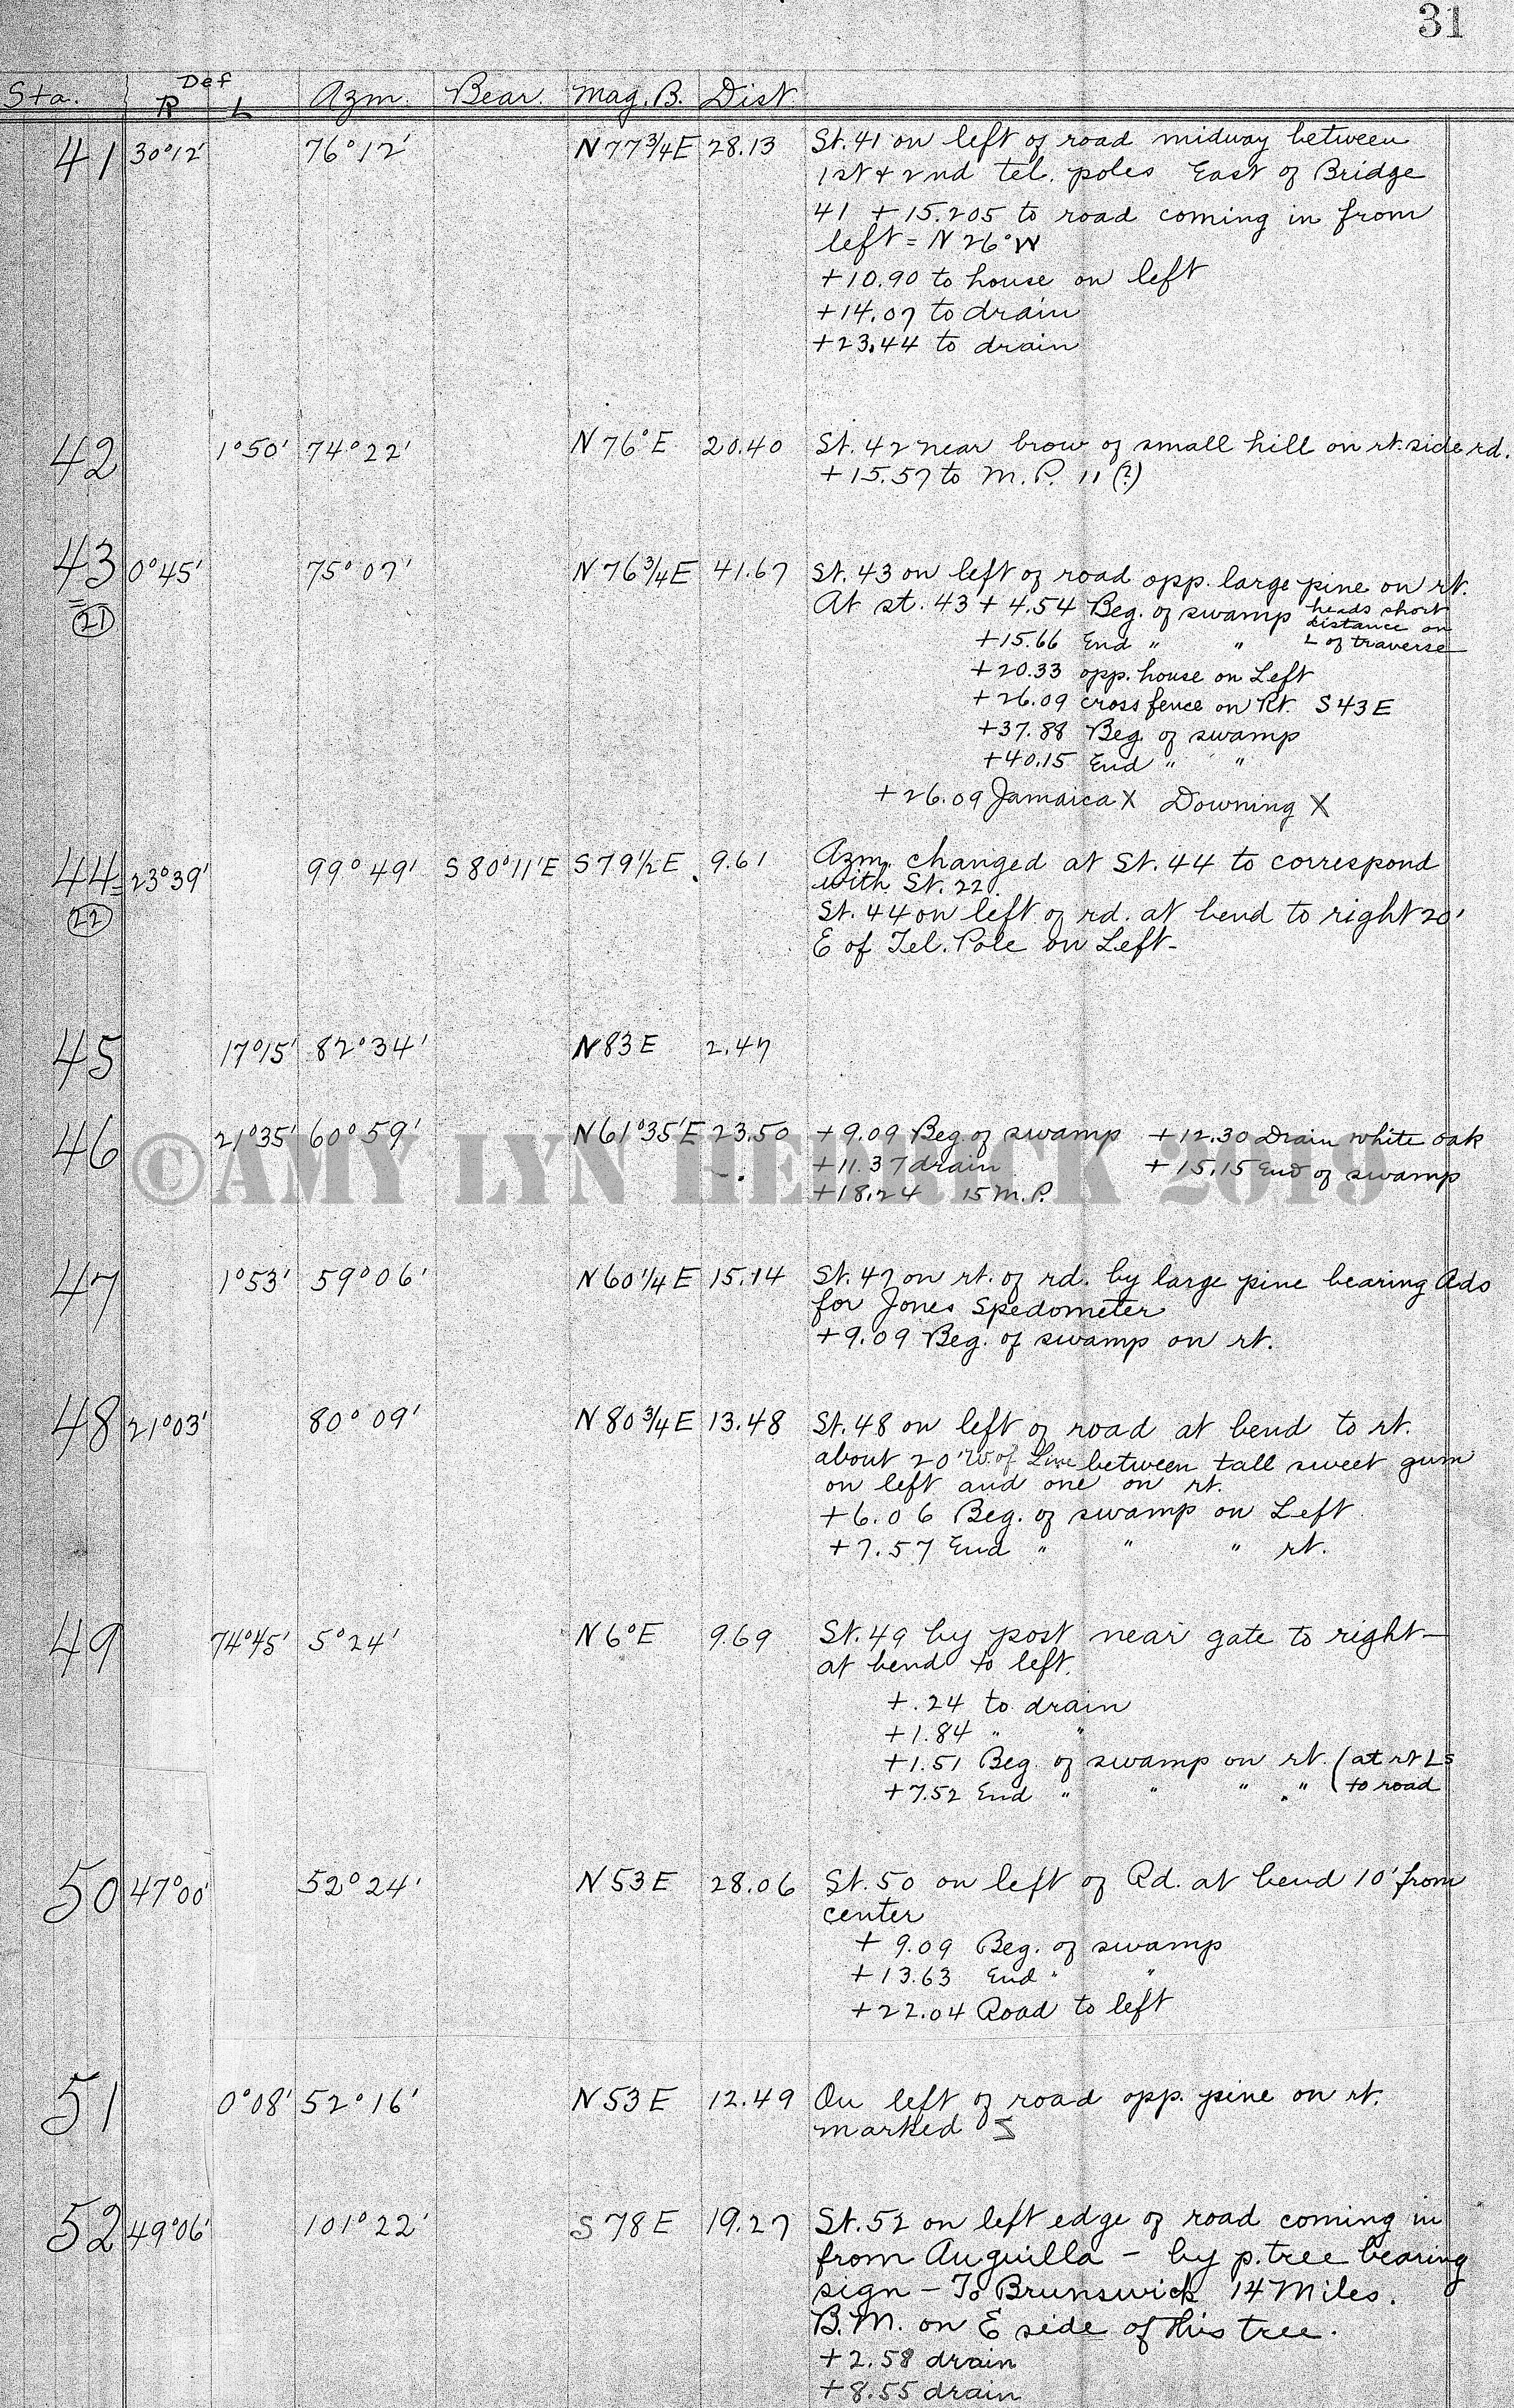 31
Def
Sta. R L Azm. Bear. Mag. B. Dist.
41 30°12' 76°12' N 77 3/4 E 28.13 St. 41 on left of road midway between
1st + 2nd tel. poles East of Bridge
41 + 15.205 to road coming in from
left = N 26° W
+10.90 to house on left
+14.07 to drain
+23.44 to drain
42 1°50' 74°22' N 76° E 20.40 St. 42 near brow of small hill on rt. side rd.
+15.57 to M.P. 11 (?)
43 0°45' 75°07' N 76 3/4 E 41.67 St. 43 on left of road opp. large pine on rt.
= 21 At st. 43 + 4.54 Beg. of swamp heads short
distance on
L of traverse
+15.66 End " "
+20.33 opp. house on Left
+26.09 cross fence on Rt. S 43 E
+37.88 Beg. of swamp
+40.15 End " "
+26.09 Jamaica X Downing X
44 = 23°39' 99°49' S 80°11' E S 79 1/2 E 9.61 Azm. changed at St. 44 to correspond
with St. 22
22 St. 44 on left of rd. at bend to right 20'
E of Tel. Pole on Left-
45 17°15' 82°34' N 83 E 2.47
46 21°35' 60°59' N 61°35' E 23.50 +9.09 Beg. of swamp +12.30 Drain white oak
+11.37 drain +15.15 End of swamp
+18.24 15 M.P.
©AMY LYN HERRICK 2019
47 1°53' 59°06' N 60 1/4 E 15.14 St. 47 on rt. of rd. by large pine bearing Ads
for Jones Spedometer
+9.09 Beg. of swamp on rt.
48 21°03' 80°09' N 80 3/4 E 13.48 St. 48 on left of road at bend to rt.
about 20' W. of Line between tall sweet gum
on left and one on rt.
+6.06 Beg. of swamp on Left
+7.57 End " " " rt.
49 74°45' 5°24' N 6° E 9.69 St. 49 by post near gate to right-
at bend to left.
+.24 to drain
+1.84 " "
+1.51 Beg. of swamp on rt. (at rt Ls
+7.52 End " " " " (to road
50 47°00' 52°24' N 53 E 28.06 St. 50 on left of Rd. at bend 10' from
center
+ 9.09 Beg. of swamp
+13.63 End " "
+22.04 Road to left
51 0°08' 52°16' N 53 E 12.49 On left of road opp. pine on rt.
marked
52 49°06' 101°22' S 78 E 19.27 St. 52 on left edge of road coming in
from Anguilla - by p. tree bearing
sign - To Brunswick 14 Miles.
B.M. on E side of this tree.
+2.58 drain
+8.55 drain